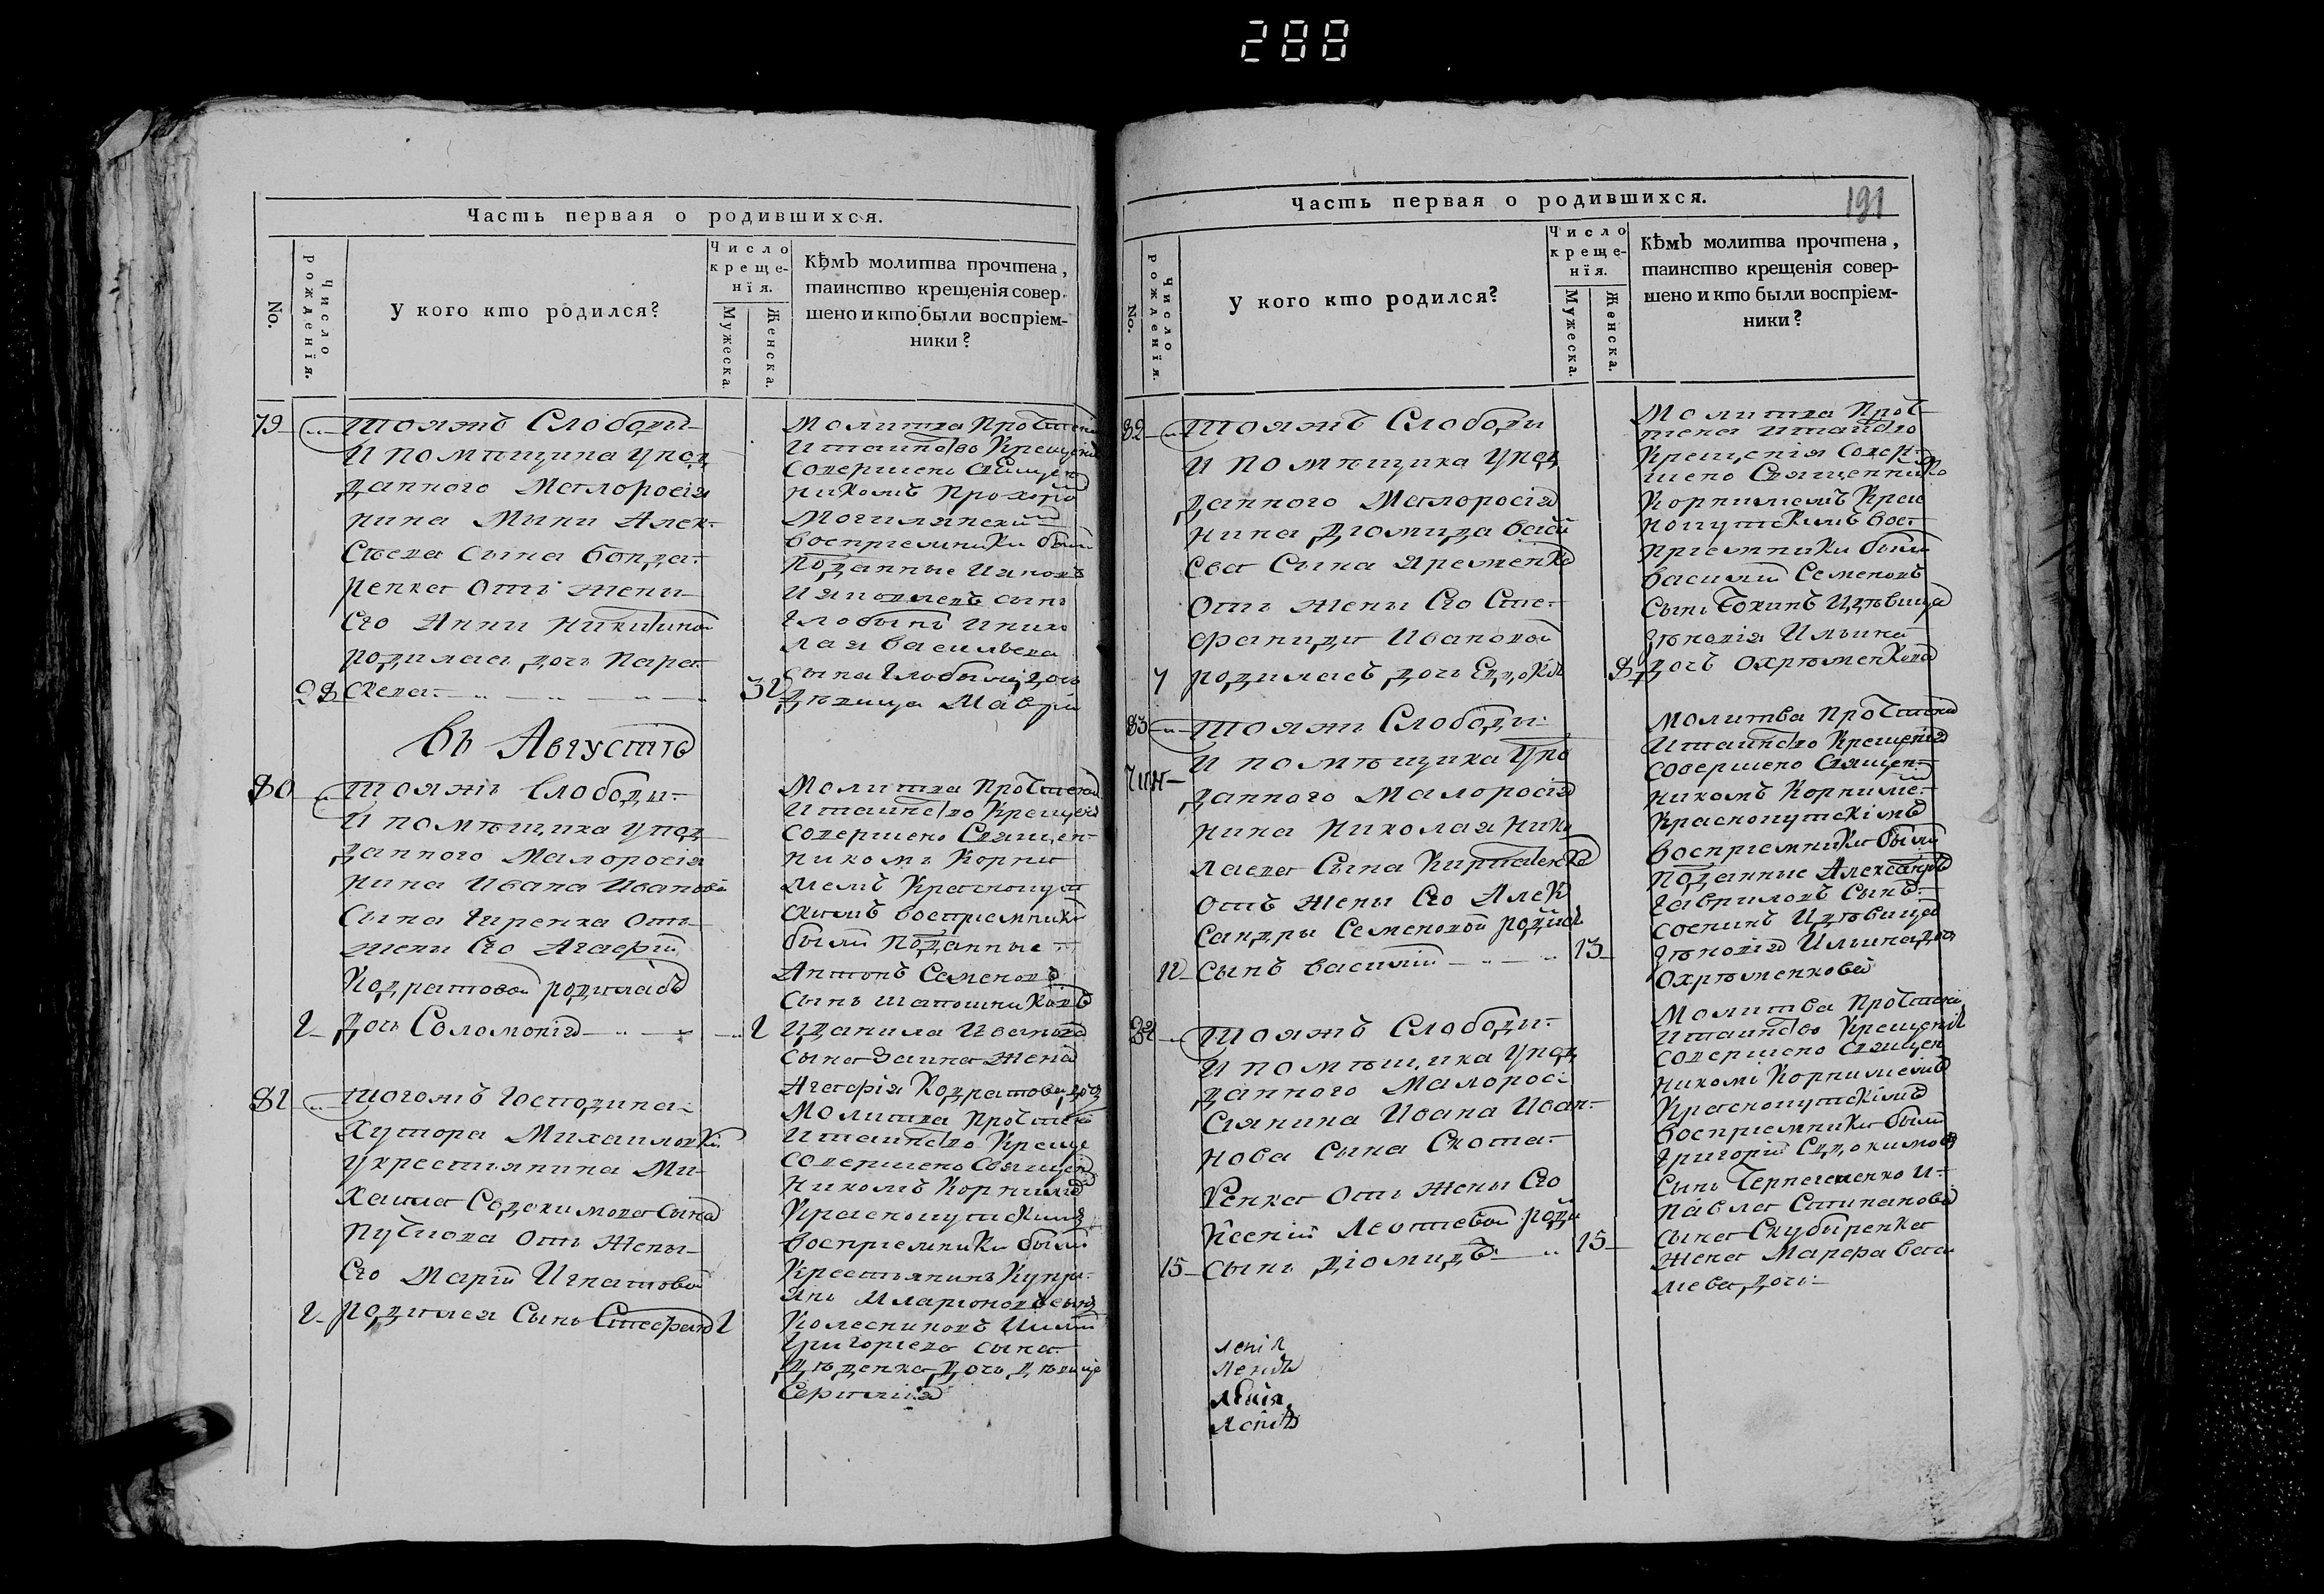 288
Часть первая о родившихся.
No.
Число рожденїя.
У кого кто родился?
Число крещенїя.
Мужеска.
Женска.
Кѣмъ молитва прочтена,
таинство крещенія совер-
шено и кто были воспріем-
ники?
79
Тояжъ Слободы
И помѣщика упод
данного Малоросія
нина Мини Алек-
сѣева сына Бонда-
ренка отъ жены
Его Анни Никитиной
родилась дочь Пара-
28 скева 31
Молитва Прочтена
И таинство Крещенія
совершено Священ
никомъ Прохоро
Могилянски
воспріемники были
Подданные
сынъ
Глобинъ и нико
лая васильева
сына Глобы дочь
дѣвица Мавра
Въ Августѣ
80
Тояжъ Слободы
И помѣщика упод
данного Малоросія
нина Ивана Иванова
сына отъ
жени Его Агафіи
Кодратовой родилась
1 дочь Соломонія 1
Молитва Прочтена
И таинство Крещенія
совершено Священ-
никомъ Корни
лиемъ Краснокут
скимъ воспріемники
были Подданные
Антонъ Семеновъ
сынъ Шапошниковъ
И Данила Иванова
сына Заика жена
Агафія Кодратова дочь
81
Тогожъ Господина
Хутора Михайловки
у крестьянина Ми-
хаила Евдокимова сына
Пугиова отъ жены
Его Маріи Игнатовой
1 родился сынъ Стефанъ 1
Молитва Прочтена
И таинство Креще
совершено Священ
никомъ Корнилие
Краснокутскимъ
воспріемники были
Крестьянинъ Купри-
янъ Иларионовъ сынъ
Колесниковъ И
Григориева сына
Дѣденка дочь дѣвица
Часть первая о родившихся.
191
No.
Число рожденїя.
У кого кто родился?
Число крещенїя.
Мужеска.
Женска.
Кѣмъ молитва прочтена,
таинство крещенія совер-
шено и кто были воспріем-
ники?
82
Тояжъ Слободы
И помѣщика упод
данного Малоросія
нина Диомида васи
ева сына Яременка
Отъ жены Его Сте-
фаниды Ивановой
7 родилась дочь Евдокія 8
Молитва Проч-
тена И таинство
Крещенія совер-
шено Священнико
Корнилиемъ Крас
нокутскимъ вос-
пріемники были
Василій Семеновъ
сынъ И дѣвица
Зѣновія Ильина
дочь Охрѣменкова
83
Тояжъ Слободы
И помѣщика упо
данного Малоросія
нина Николая Нико
лаева сына
отъ жены Его Алек
сандры Семеновой родился
12 сынъ Василій 13
Молитва Прочтена
И таинство Крещенія
совершено Священ-
никомъ Корнилие-
Краснокутскімъ
воспріемники были
Подданные Александръ
Гавриловъ сынъ
И дѣвица
Зѣновія Ильина дочь
Охрѣменковой
Тояжъ Слободы
И помѣщика упод
данного Малорос-
сіянина Ивана Иван-
нова сына Скота-
ренка отъ жены Его
Ксеніи Леотиевой роди
15 сынъ Діомидъ 15
Молитва Прочтена
И таинство Крещенія
совершено Священ
никомъ Корнилиемъ
Краснокутскімъ
воспріемники были
Григорій Евдокимовъ
сынъ И
Павла Стипанова
сына Скубиренка
жена Марфа васи
лиева дочь